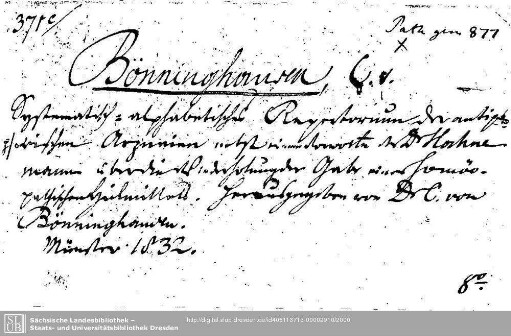 371c/
Path. gen 877
x
Bönninghausen, C. v.
Systematisch-alphabetisches Repertorium der antips-
orischen Arzneien nebst einem Vorworte des Dr Hahne-
mann über die Wiederholung der Gabe eines homöo-
pathischen Heilmittels. Herausgegeben von Dr C. von
Bönninghausen.
Münster 1832.
8o
Sächsische Landesbibliothek –
Staats- und Universitätsbibliothek Dresden